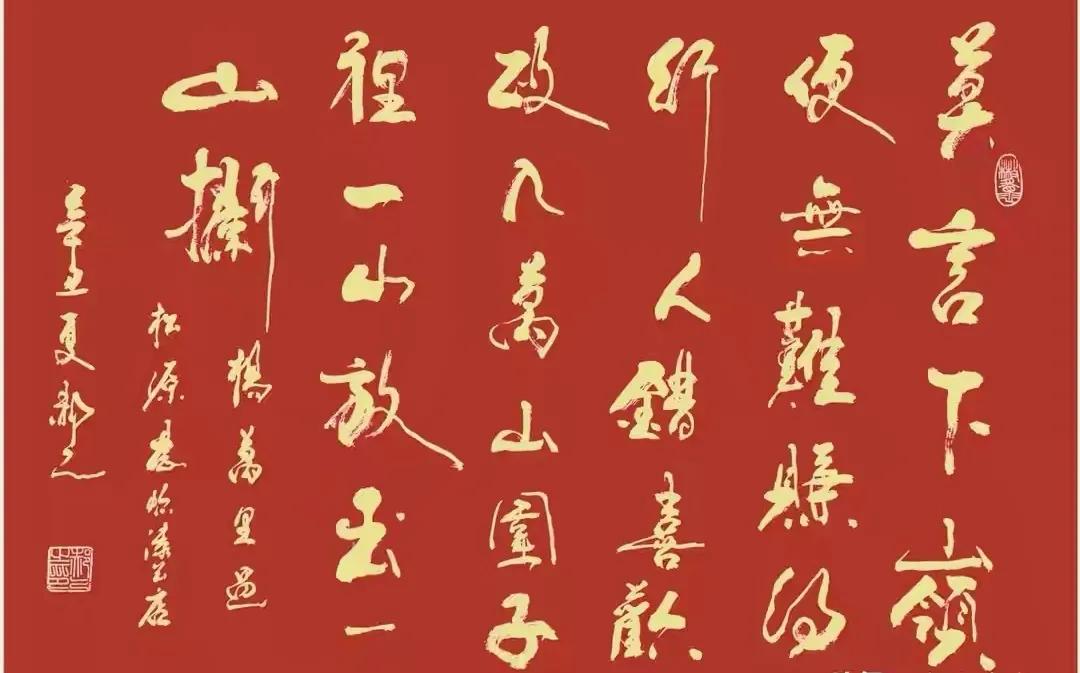 莫言下嶺
便無難賺得
行人錯喜歡
政入萬山圍子
裡一山放出一
山攔
楊萬里過
松源晨炊漆公店
辛丑夏